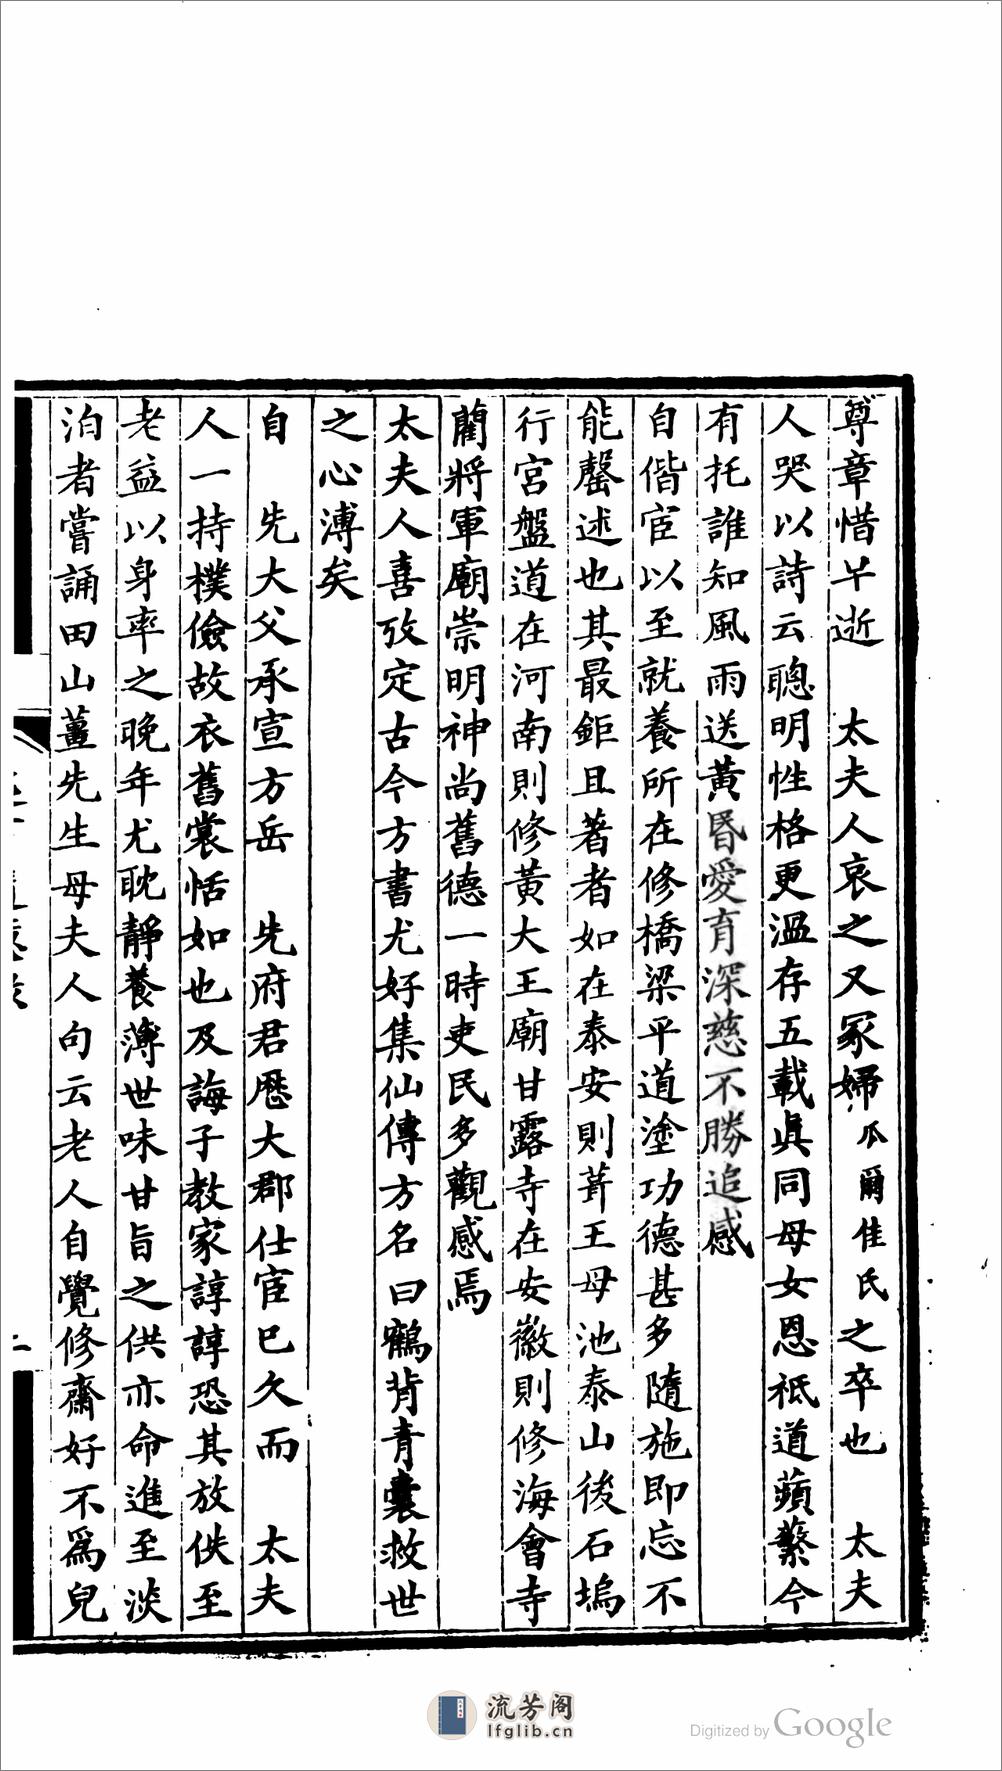 尊章惜早逝　太夫人哀之又冢婦瓜爾佳氏之卒也　太夫
人哭以詩云聰明性格更溫存五載眞同母女恩祗道蘋蘩今
有托誰知風雨送黃昏愛育深慈不勝追感
自偕宦以至就養所在修橋梁平道塗功德甚多隨施即忘不
能罄述也其最鉅且著者如在泰安則葺王母池泰山後石塢
行宮盤道在河南則修黃大王廟甘露寺在安徽則修海會寺
藺將軍廟崇明神尚舊德一時吏民多觀感焉
太夫人喜攷定古今方書尤好集仙傳方名曰鶴背青囊救世
之心溥矣
自　先大父承宣方岳　先府君歷大郡仕宦巳久而　太夫
人一持樸儉故衣舊裳恬如也及誨子教家諄諄恐其放佚至
老益以身率之晚年尤耽靜養薄世味甘旨之供亦命進至淡
泊者嘗誦田山薑先生母夫人句云老人自覺修齋好不爲兒
流芳阁
lfglib.cn
Digitized by Google